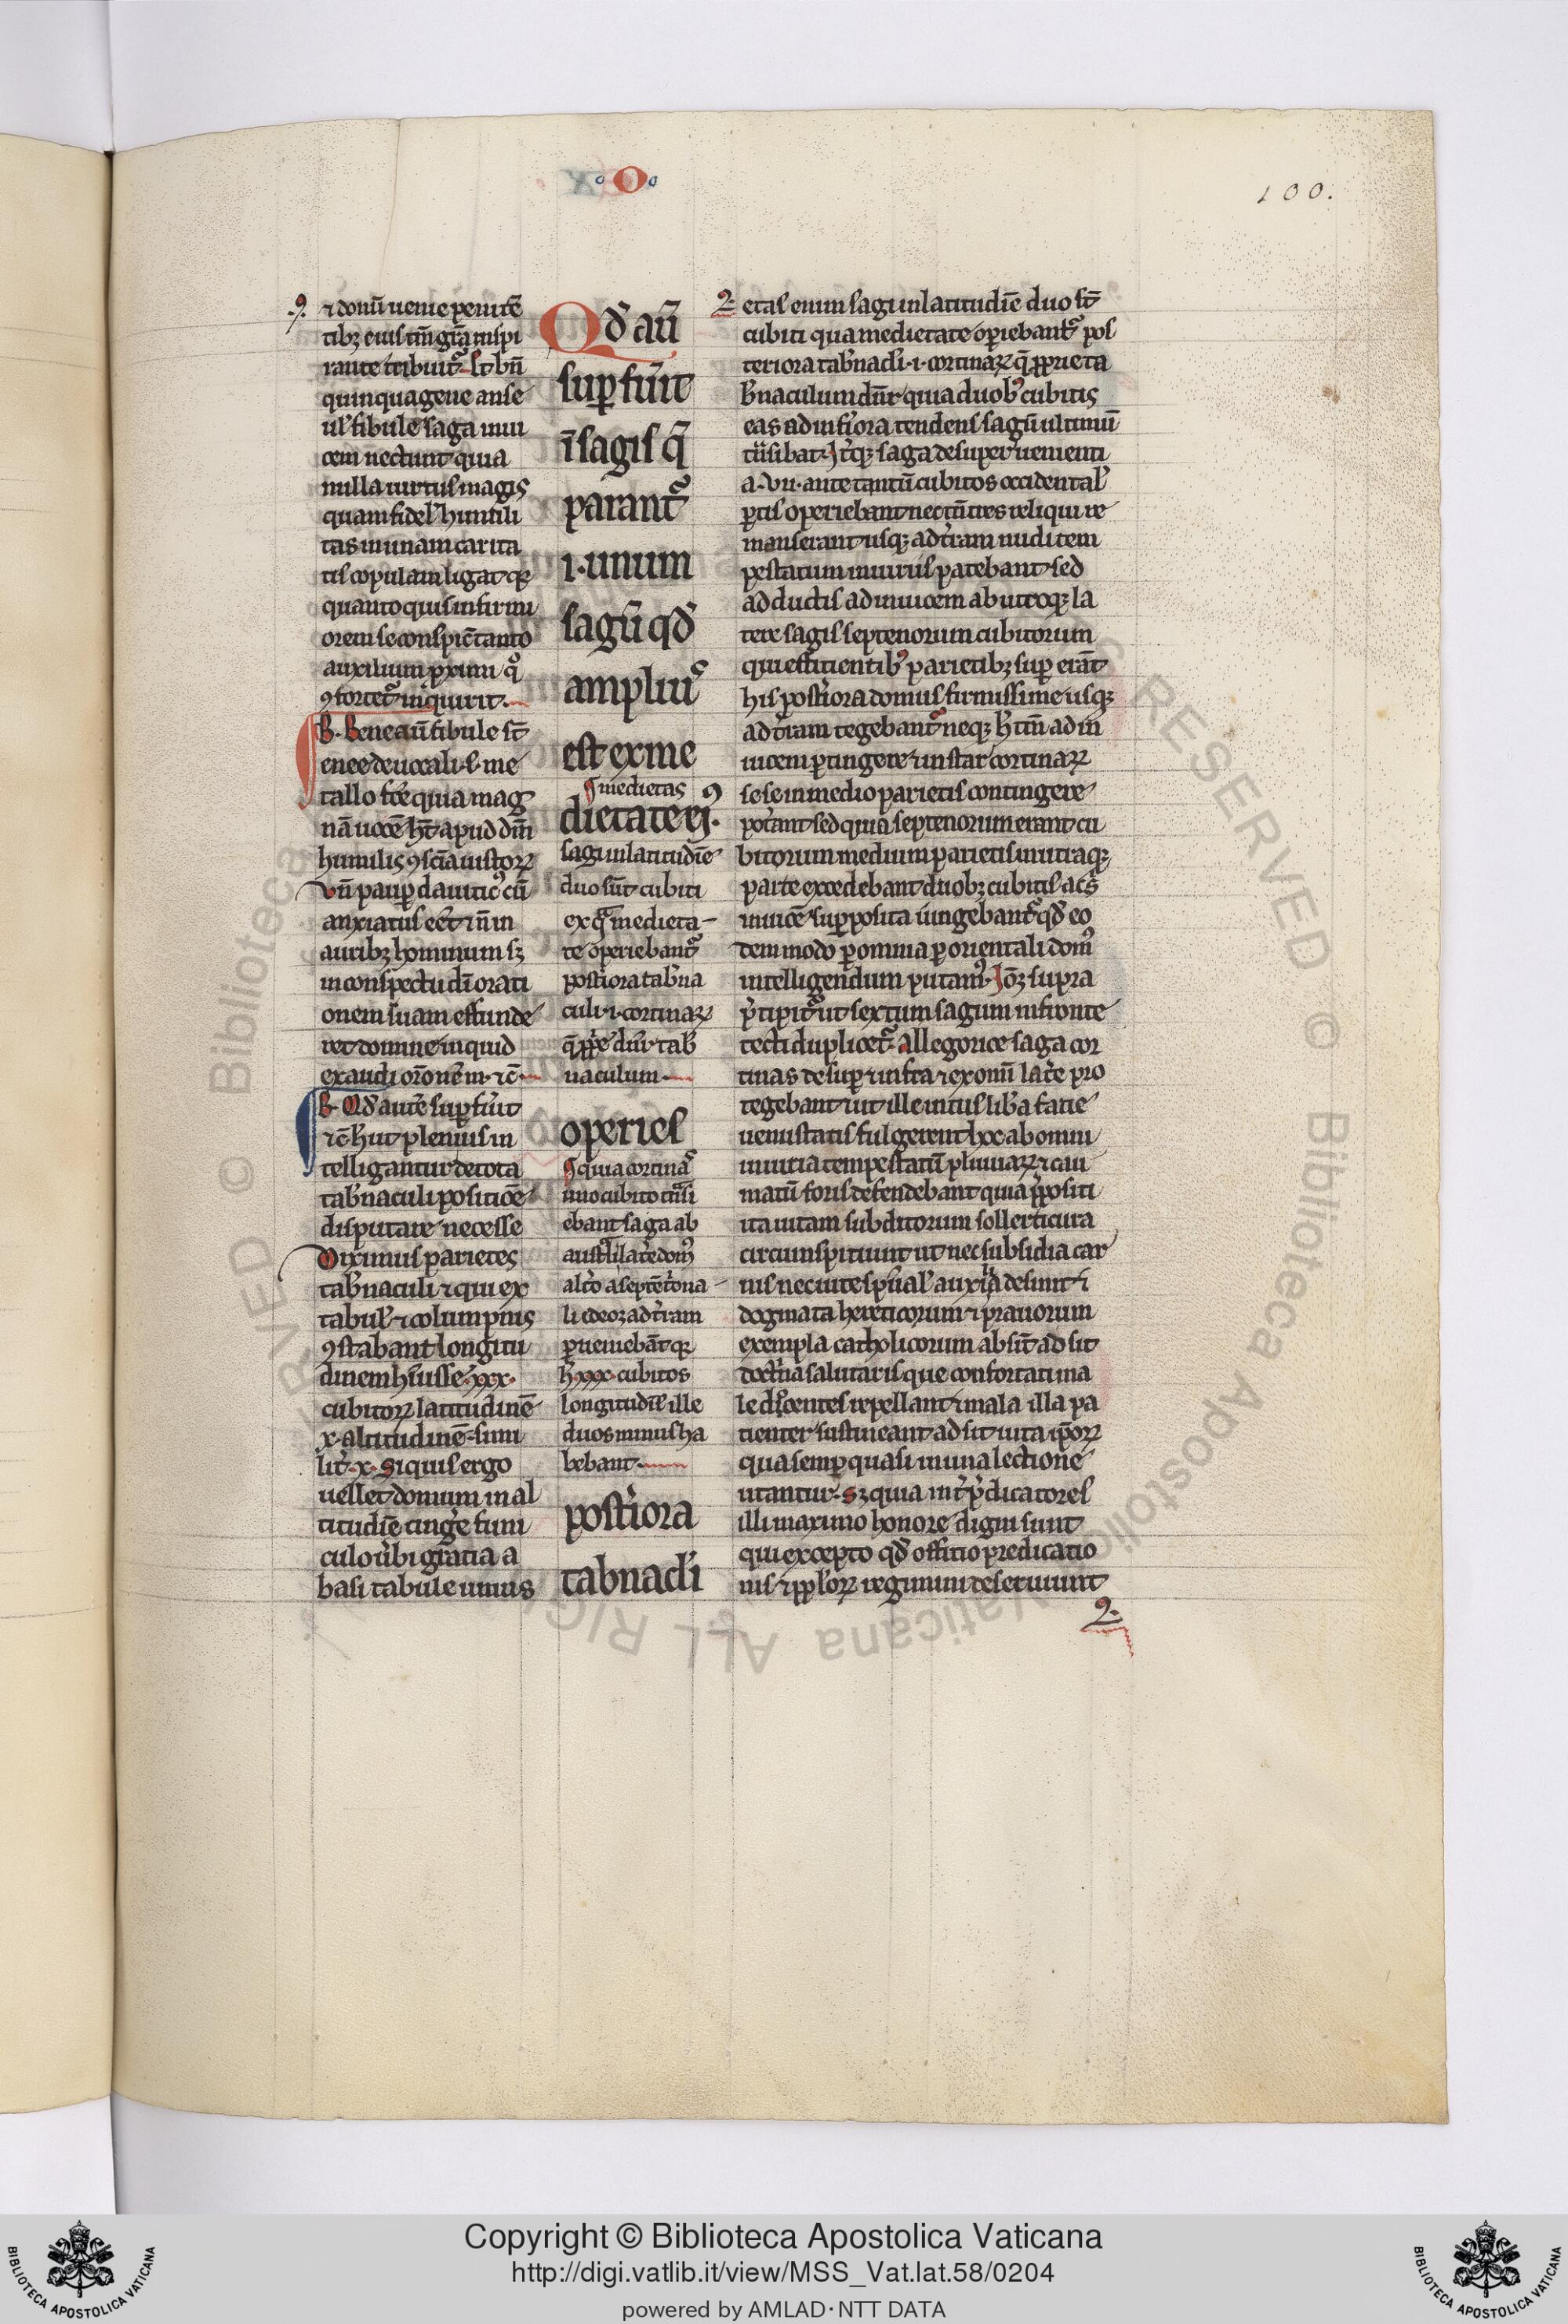 ·O·
100.
⁊ donū uenie penitē
tibꝫ eius tm̄ gr̄a inspi
rante tribuit᷑. Et bn̄
quinquagene anse
ul̓ fibule saga inui
cem nectunt quia
nulla uirtus magis
quam fidel̓ humili
tas in unam carita
tis copulam ligat qꝛ
quanto quis infirmi
orem se conspic̄ tanto
auxilium ꝓximi q°
ꝯfortet᷑ inquirit.
B. Bene aū fibule st̄
enee de uocali .s. me
tallo fc̄e quia mag
nā uocē ht̄ apud dm̄
humilis ꝯscīa iustoꝝ
Vn̄ paup̄ dauiticꝰ cū
anxiatus eēt ⁊ n̄ in
auribꝫ hominum sꝫ
in conspectu dī orati
onem suam effunde
ret domine inquid
exaudi orōnē m. ⁊c̄
B. Qd̓ autē sup̄fūit
⁊c̄ h̓ ut plenius in
telligantur de tota
tab̓naculi positiōe
disputare necesse
Diximus parietes
tab̓naculi ⁊ qui ex
tabul̓ ⁊ columpnis
ꝯstabant longitu
dinem h̓uisse .xxx.
cubitoꝝ latitudinē
x. altitudinē simi
lit̓ .x. Siquis ergo
uellet domum in al
titudīe cinge᷑ funi
culo u̓bi gratia a
basi tabule unius
Qd̓ aū
sup̄fūit
ī sagis q̄
parant᷑
.i. unum
sagū qd̓
ampliꝰ
est ex me
medietas
dietate eiꝰ.
sagi in latitudīe
duo sūt cubiti
ex qᵃ medieta
te operiebant᷑
post̓iora tab̓na
culi .i. cortinaꝝ
q̄ ꝓp̓e dn̄r tab̓
naculum.
operies
quia cortinaꝰ
uno cubito tn̄si
ebant saga ab
aust̓li lat̓e domꝰ
alt̓o a septēt̓ona
li ideoꝫ ad t̓ram
ꝑueniebāt qꝛ
h̓ xxx. cubitos
longitudīē ille
duos minus ha
bebant.
post̓iora
tabnacl̓i
etas enim sagi in latitudīe duo st̄
cubiti qua medietate op̄riebant᷑ pos
teriora tab̓nacl̓i .i. cortinaꝝ q̄ ꝓprie ta
b̓naculum dn̄r quia duobꝰ cubitis
eas ad inf̓iora tendens sagū ultimū
tn̄sibat. Itēqꝫ saga desuper uenienti
a .vii. ante tantū cubitos occidental̓
ꝑtis operiebant nec tn̄ tres reliqui re
manserant usqꝫ ad t̓ram nudi tem
pestatum iniuriis patebant sed
adductis ad inuicem ab utroqꝫ la
tere sagis septenorum cubitorum
qui efficientibꝰ parietibꝫ sup̄ erāt
his post̓iora domus firmissime usqꝫ
ad t̓ram tegebant᷑ neqꝫ h̓ tn̄ ad in
uicem ꝑtingere ⁊ instar cortinaꝝ
sese in medio parietis contingere
pot̓ant sed quia septenorum erant cu
bitorum medium parietis in utraqꝫ
parte excedebant duobꝫ cubitis ac sͥ
inuicē sup̄posita iungebant᷑ qd̓ eo
dem modo ꝑ omnia ꝑ orientali domꝰ
intelligendum putamꝰ. Iōꝫ supra
p̓cipit᷑ ut sextum sagum in fronte
tecti duplicet᷑. Allegorice saga cor
tinas desup̄ ⁊ infra ⁊ ex omī lat̓e ꝓ
tegebant ut ille intus lib̓a facie
uenustatis fulgerent hec ab omni
iniuria tempestatū pluuiaꝝ ⁊ cau
matū foris defendebant quia p̄positi
ita uitam subditorum sollerti cura
circumspitiunt ut nec subsidia car
nis nec uite sp̓ual̓ auxilia desint ⁊
dogmata hereticorum ⁊ prauorum
exempla catholicorum absīt ad sit
doct̓na salutaris que confortati ma
le docentes repellant ⁊ mala illa pa
tienter sustineant ad sit uita ip̄oꝝ
qua semꝑ quasi in una lectione
utantur. Sꝫ quia int̓ p̓dicatores
illi maximo honore digni sunt
qui excepto qd̓ offitio predicatio
nis ⁊ ppl̓oꝝ regimini deseruiunt
Copyright © Biblioteca Apostolica Vaticana
http://digi.vatlib.it/view/MSS_Vat.lat.58/0204
powered by AMLAD · NTT DATA
BIBLIOTECA APOSTOLICA VATICANA
BIBLIOTECA APOSTOLICA VATICANA